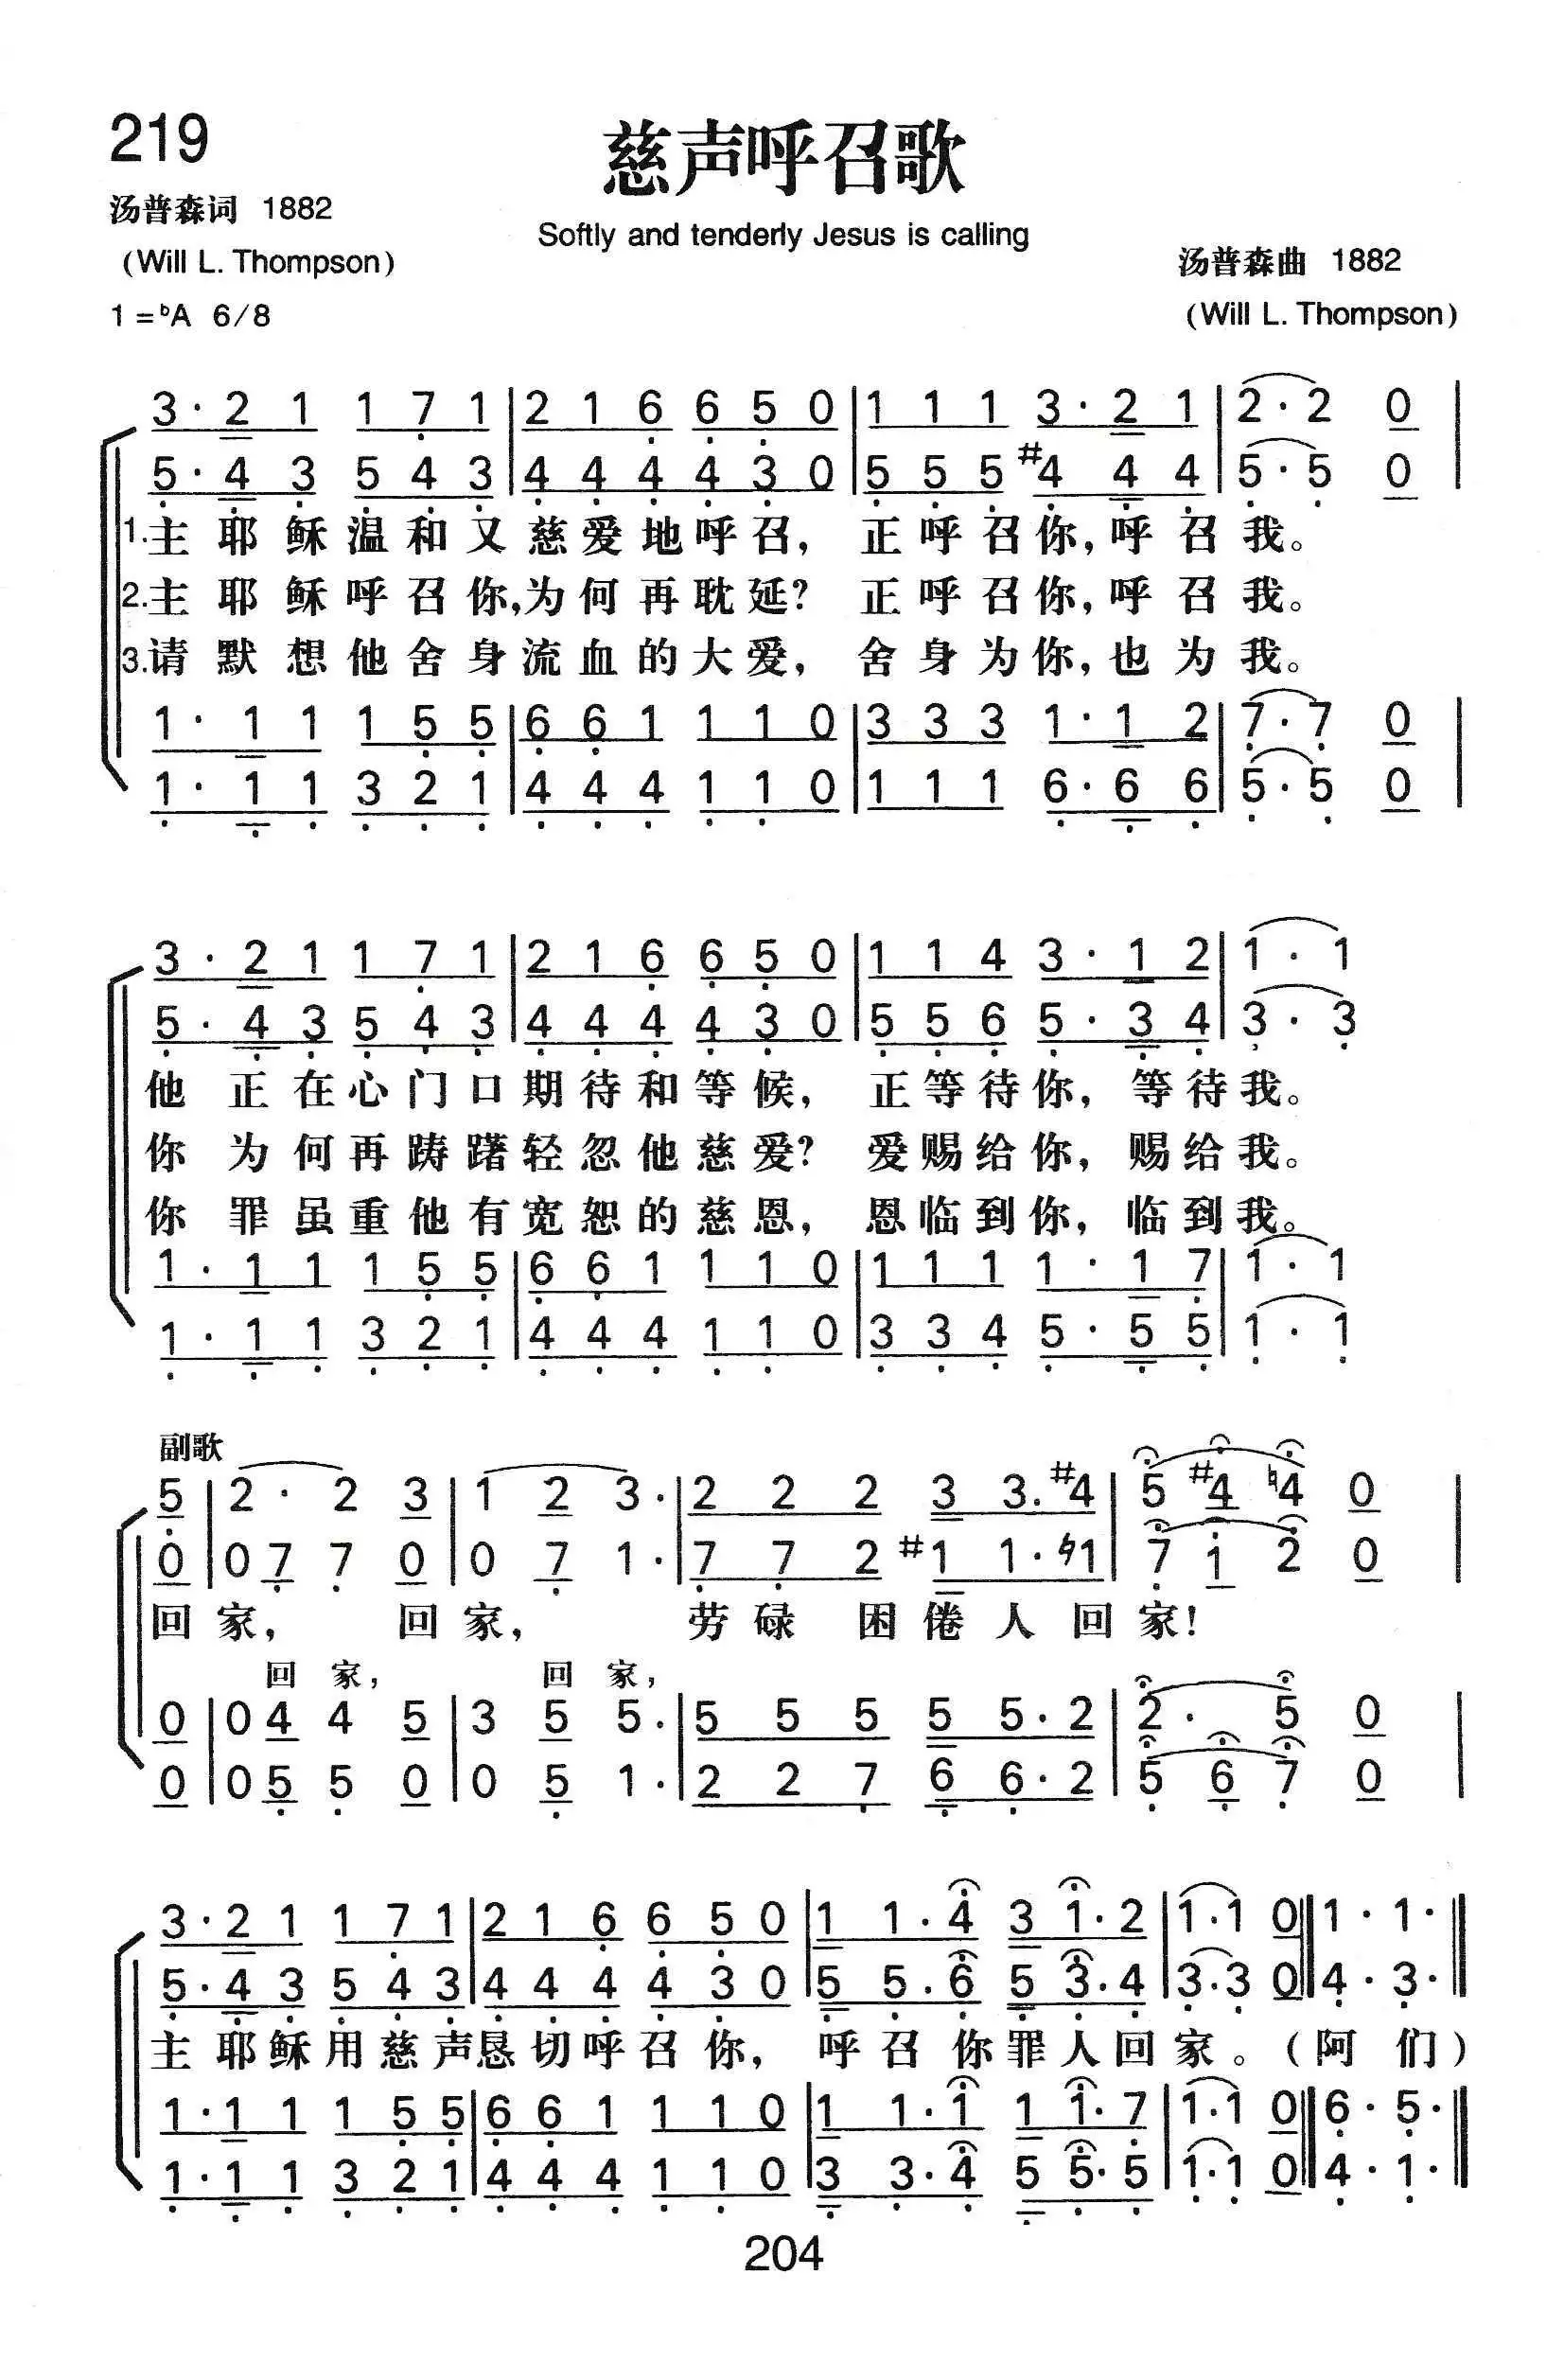 219
慈声呼召歌
汤普森词 1882
Softly and tenderly Jesus is calling
(Will L. Thompson)
汤普森曲 1882
1=♭A 6/8
(Will L. Thompson)
3·2 1 1 7 1 | 2 1 6 6 5 0 | 1 1 1 3·2 1 | 2·2 0 |
5·4 3 5 4 3 | 4 4 4 4 3 0 | 5 5 5 #4 4 4 | 5·5 0 |
1.主耶稣温和又慈爱地呼召,正呼召你,呼召我。
2.主耶稣呼召你,为何再耽延?正呼召你,呼召我。
3.请默想他舍身流血的大爱,舍身为你,也为我。
1·1 1 1 5 5 | 6 6 1 1 1 0 | 3 3 3 1·1 2 | 7·7 0 |
1·1 1 3 2 1 | 4 4 4 1 1 0 | 1 1 1 6·6 6 | 5·5 0 |
3·2 1 1 7 1 | 2 1 6 6 5 0 | 1 1 4 3·1 2 | 1·1
5·4 3 5 4 3 | 4 4 4 4 3 0 | 5 5 6 5·3 4 | 3·3
他正在心门口期待和等候,正等待你,等待我。
你为何再踌躇轻忽他慈爱?爱赐给你,赐给我。
你罪虽重他有宽恕的慈恩,恩临到你,临到我。
1·1 1 1 5 5 | 6 6 1 1 1 0 | 1 1 1 1·1 7 | 1·1
1·1 1 3 2 1 | 4 4 4 1 1 0 | 3 3 4 5·5 5 | 1·1
副歌
5 | 2·2 3 | 1 2 3· | 2 2 2 3 3·#4 | 5 #4 ♮4 0 |
0 | 0 7 7 0 | 0 7 1· | 7 7 2 #1 1·♮1 | 7 1 2 0 |
回家,回家,劳碌困倦人回家!
回家,回家,
0 | 0 4 4 5 | 3 5 5· | 5 5 5 5 5·2 | 2·5 0 |
0 | 0 5 5 0 | 0 5 1· | 2 2 7 6 6·2 | 5 6 7 0 |
3·2 1 1 7 1 | 2 1 6 6 5 0 | 1 1·4 3 1·2 | 1·1 0 ‖ 1·1· ‖
5·4 3 5 4 3 | 4 4 4 4 3 0 | 5 5·6 5 3·4 | 3·3 0 ‖ 4·3· ‖
主耶稣用慈声恳切呼召你,呼召你罪人回家。(阿们)
1·1 1 1 5 5 | 6 6 1 1 1 0 | 1 1·1 1 1·7 | 1·1 0 ‖ 6·5· ‖
1·1 1 3 2 1 | 4 4 4 1 1 0 | 3 3·4 5 5·5 | 1·1 0 ‖ 4·1· ‖
204